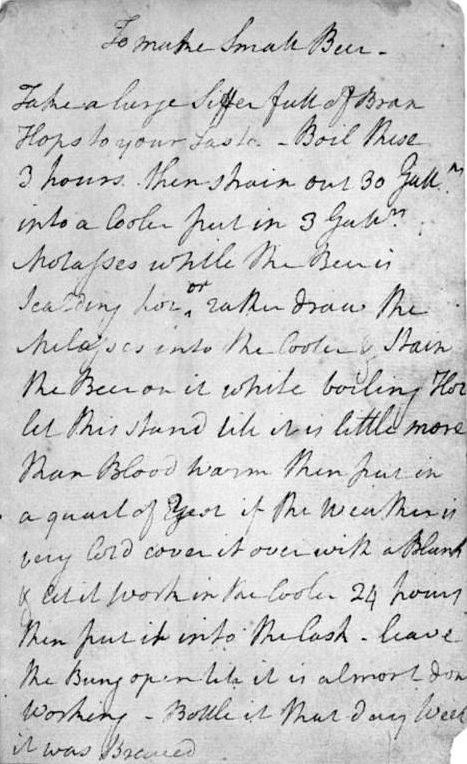 To make Small Beer -
Take a large Siffer full of Bran
Hops to your Taste - Boil these
3 hours. then strain out 30 Gall.ⁿˢ
into a Cooler put in 3 Gallⁿˢ
Molaſses while the Beer is
Scalding hot or rather draw the
Molaſses into the Cooler & Stain
the Beer on it while boiling Hot
let this stand till it is little more
than Blood warm then put in
a quart of Yest if the Weather is
very Cold cover it over with a Blank
& let it work in the Cooler 24 hours
then put it into the Cask - leave
the Bung open till it is almost don
Working - Bottle it that day Week
it was Brewed